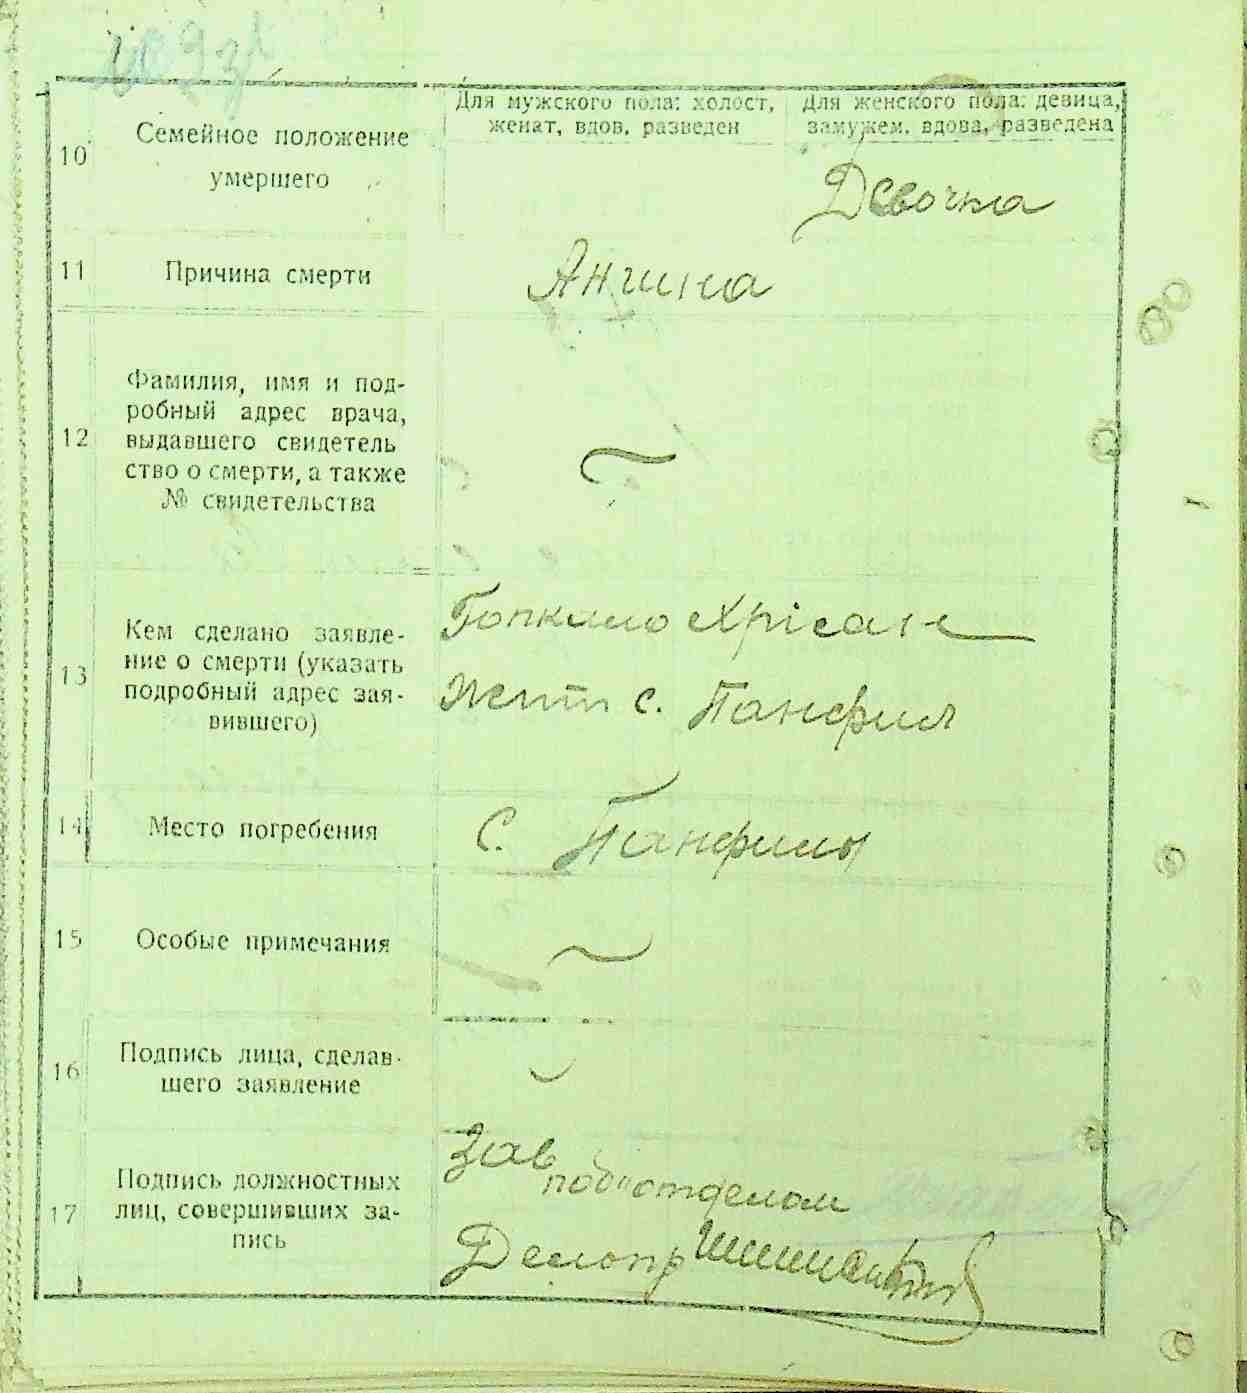 10 Семейное положение умершего
Для мужского пола: холост, женат, вдов, разведен
Для женского пола: девица, замужем, вдова, разведена
Девочка
11 Причина смерти
Ангина
12 Фамилия, имя и под-
робный адрес врача,
выдавшего свидетель
ство о смерти, а также
№ свидетельства
13 Кем сделано заявле-
ние о смерти (указать
подробный адрес зая-
вившего)
с. Панфил
14 Место погребения
С. Панфилы
15 Особые примечания
16 Подпись лица, сделав-
шего заявление
17 Подпись должностных
лиц, совершивших за-
пись
Зав
подотделом
Делопр